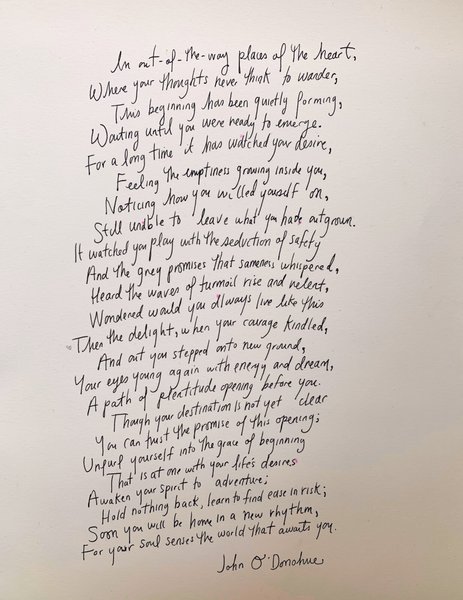 In out-of-the-way places of the heart,
Where your thoughts never think to wander,
This beginning has been quietly forming,
Waiting until you were ready to emerge.
For a long time it has watched your desire,
Feeling the emptiness growing inside you,
Noticing how you willed yourself on,
Still unable to leave what you had outgrown.
It watched you play with the seduction of safety
And the grey promises that sameness whispered,
Heard the waves of turmoil rise and relent,
Wondered would you always live like this
Then the delight, when your courage kindled,
And out you stepped onto new ground,
Your eyes young again with energy and dream,
A path of plentitude opening before you.
Though your destination is not yet clear
You can trust the promise of this opening;
Unfurl yourself into the grace of beginning
That is at one with your life's desires
Awaken your spirit to adventure;
Hold nothing back, learn to find ease in risk;
Soon you will be home in a new rhythm,
For your soul senses the world that awaits you.
John O'Donohue